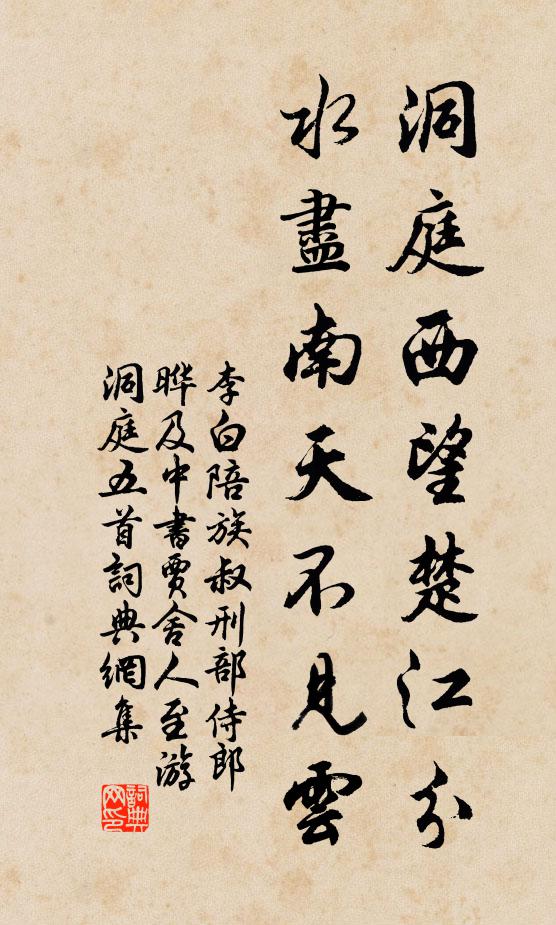 洞庭西望楚江分
水盡南天不見雲
李白陪族叔刑部侍郎
曄及中書賈舍人至游
洞庭五首詞典網集
詞典网印